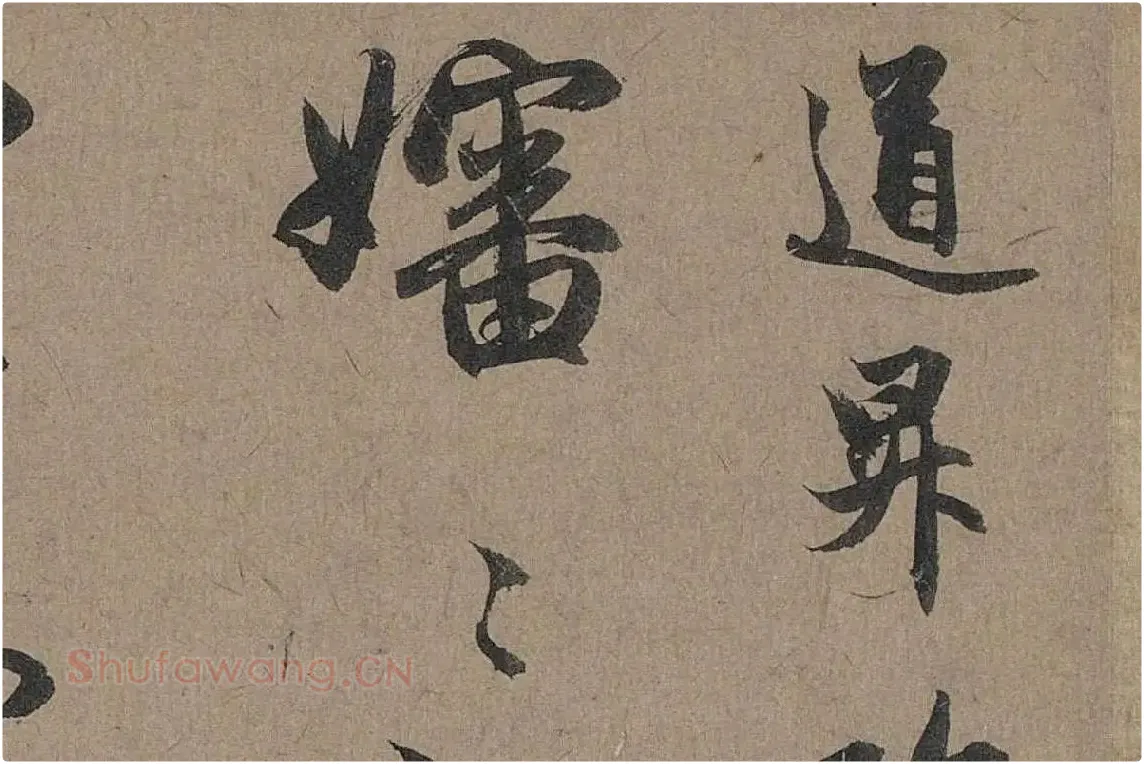 道昇
嬸〻
Shufawang.CN